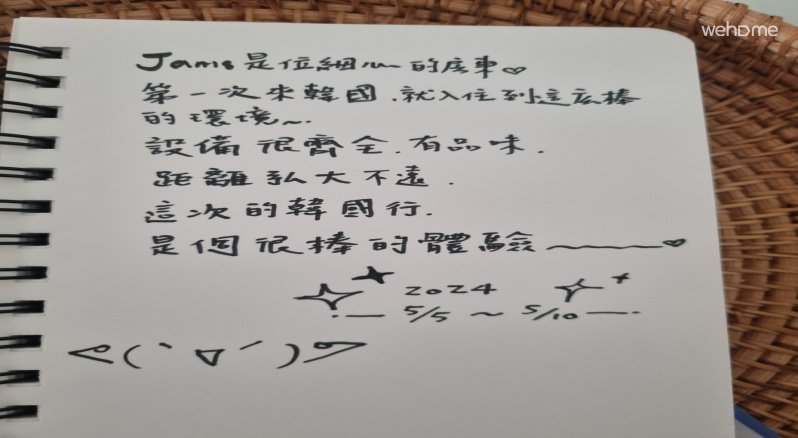 wehome
Jams是位細心的房東♡
第一次來韓國.就入住到這麼棒
的環境~.
設備很齊全.有品味.
距離弘大不遠.
這次的韓國行.
是個很棒的體驗～♡
2024
5/5 ~ 5/10